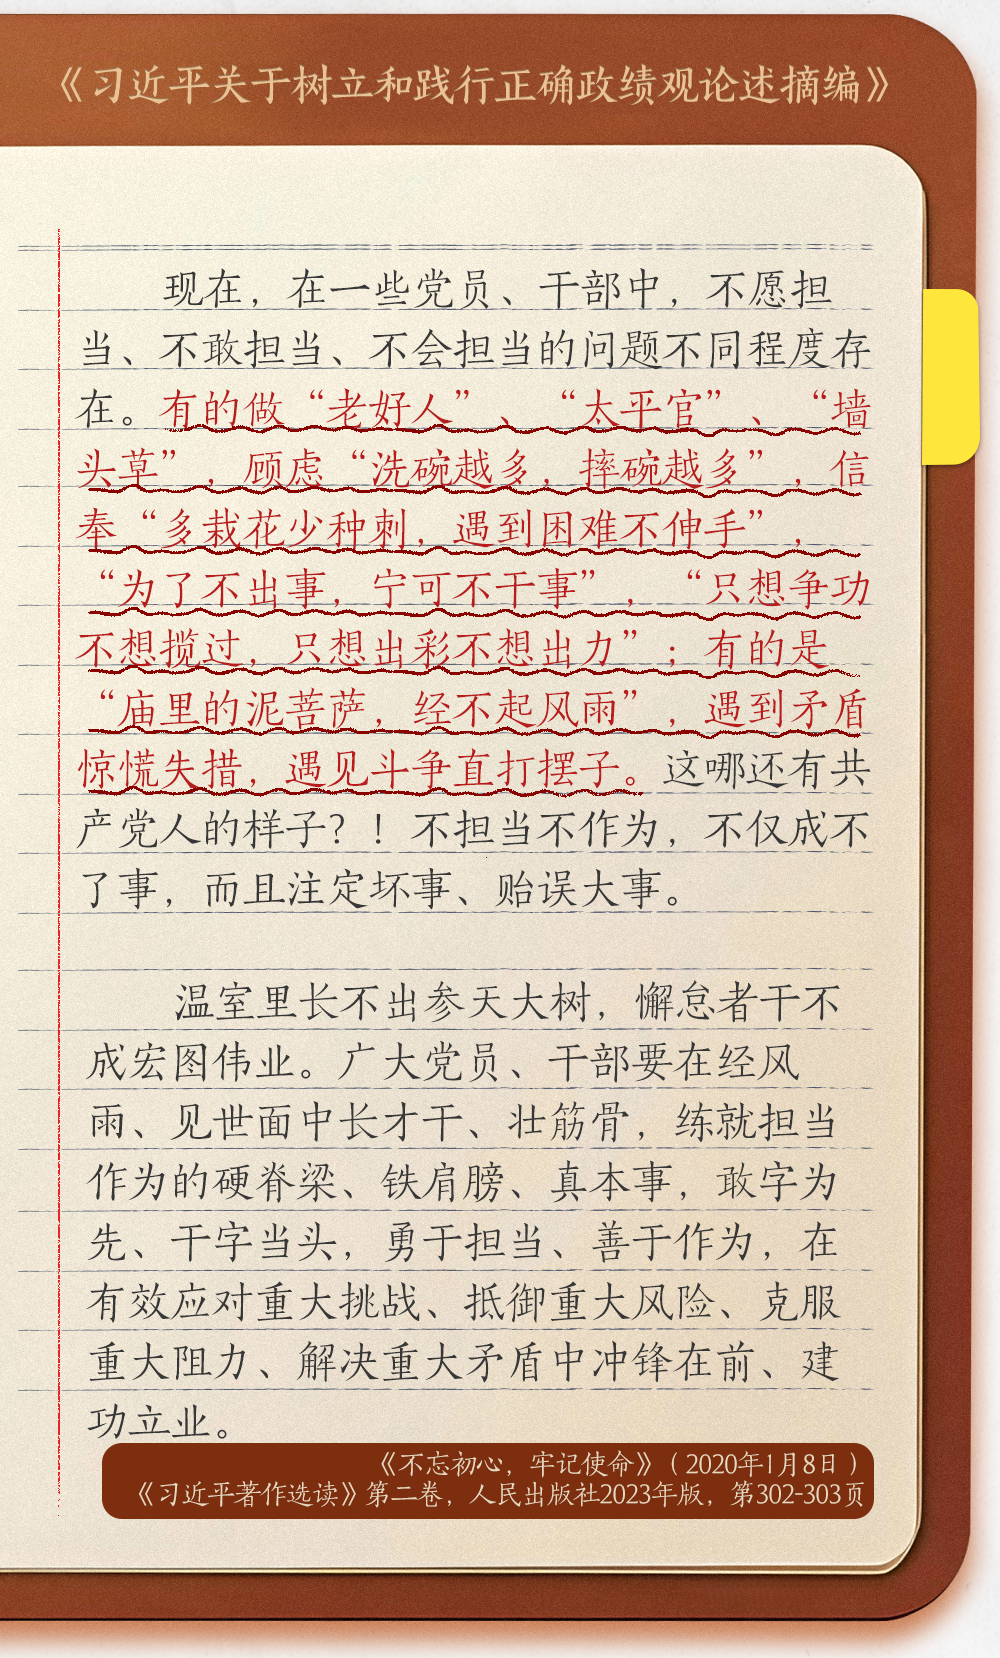 《习近平关于树立和践行正确政绩观论述摘编》
现在，在一些党员、干部中，不愿担
当、不敢担当、不会担当的问题不同程度存
在。有的做“老好人”、“太平官”、“墙
头草”，顾虑“洗碗越多，摔碗越多”，信
奉“多栽花少种刺，遇到困难不伸手”，
“为了不出事，宁可不干事”，“只想争功
不想揽过，只想出彩不想出力”；有的是
“庙里的泥菩萨，经不起风雨”，遇到矛盾
惊慌失措，遇见斗争直打摆子。这哪还有共
产党人的样子？！不担当不作为，不仅成不
了事，而且注定坏事、贻误大事。
温室里长不出参天大树，懈怠者干不
成宏图伟业。广大党员、干部要在经风
雨、见世面中长才干、壮筋骨，练就担当
作为的硬脊梁、铁肩膀、真本事，敢字为
先、干字当头，勇于担当、善于作为，在
有效应对重大挑战、抵御重大风险、克服
重大阻力、解决重大矛盾中冲锋在前、建
功立业。
《不忘初心，牢记使命》（2020年1月8日）
《习近平著作选读》第二卷，人民出版社2023年版，第302-303页